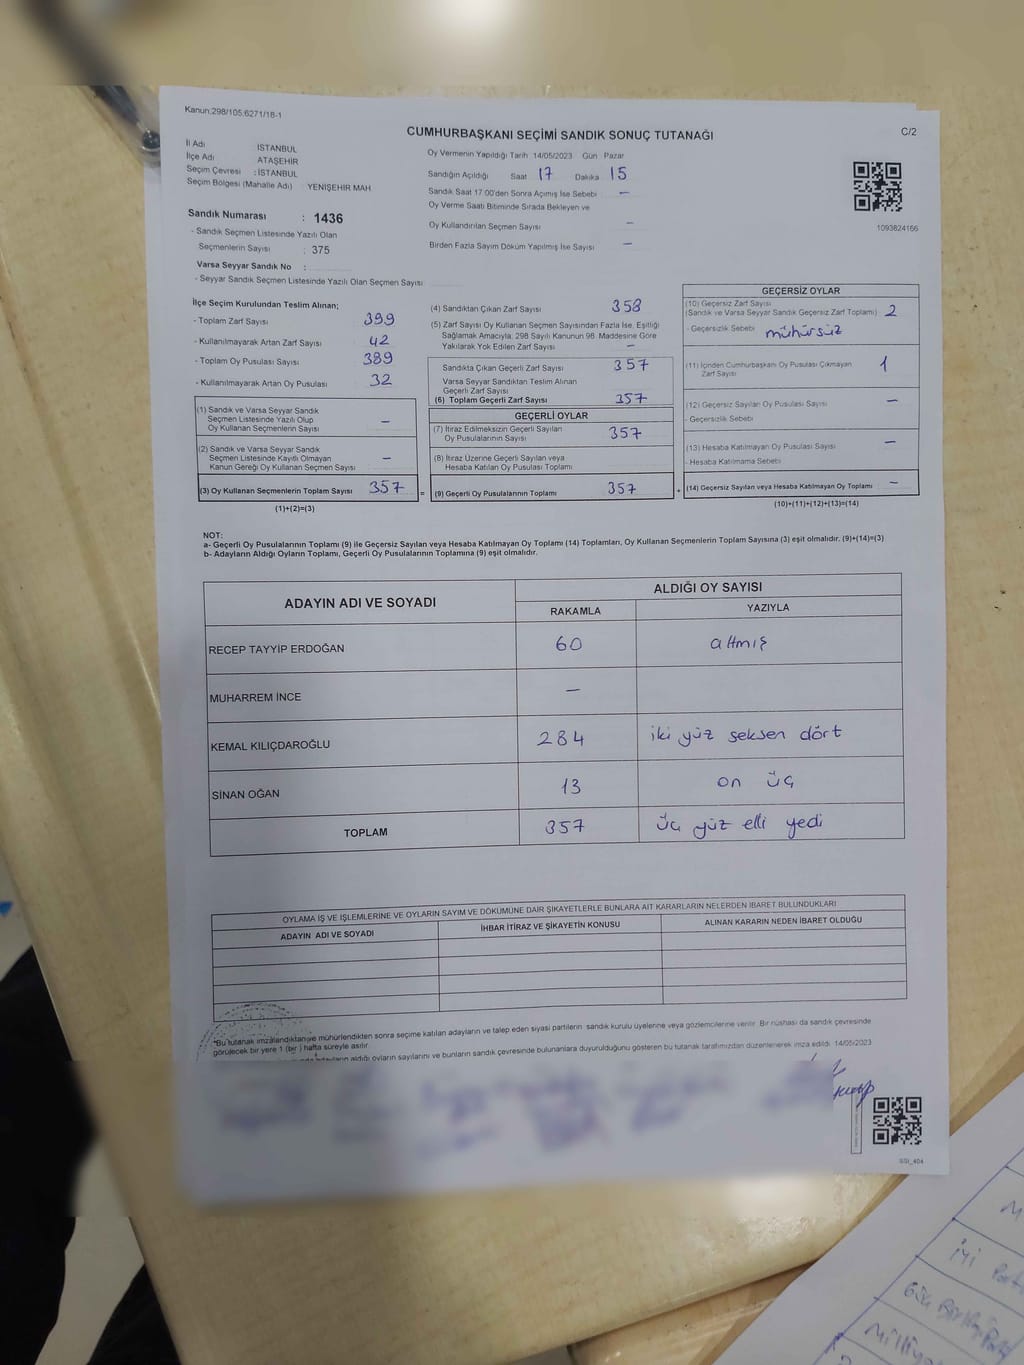 Kanun:298/105,6271/18-1
CUMHURBAŞKANI SEÇİMİ SANDIK SONUÇ TUTANAĞI
C/2
İl Adı İSTANBUL
İlçe Adı ATAŞEHİR
Seçim Çevresi : İSTANBUL
Seçim Bölgesi (Mahalle Adı) YENİŞEHİR MAH
Sandık Numarası : 1436
- Sandık Seçmen Listesinde Yazılı Olan
Seçmenlerin Sayısı : 375
Varsa Seyyar Sandık No :
- Seyyar Sandık Seçmen Listesinde Yazılı Olan Seçmen Sayısı
Oy Vermenin Yapıldığı Tarih 14/05/2023 Gün Pazar
Sandığın Açıldığı Saat 17 Dakika 15
Sandık Saat 17:00'den Sonra Açılmış İse Sebebi –
Oy Verme Saati Bitiminde Sırada Bekleyen ve
Oy Kullandırılan Seçmen Sayısı –
Birden Fazla Sayım Döküm Yapılmış İse Sayısı –
1093824166
İlçe Seçim Kurulundan Teslim Alınan;
- Toplam Zarf Sayısı 399
- Kullanılmayarak Artan Zarf Sayısı 42
- Toplam Oy Pusulası Sayısı 389
- Kullanılmayarak Artan Oy Pusulası 32
(1) Sandık ve Varsa Seyyar Sandık
Seçmen Listesinde Yazılı Olup
Oy Kullanan Seçmenlerin Sayısı –
(2) Sandık ve Varsa Seyyar Sandık
Seçmen Listesinde Kayıtlı Olmayan
Kanun Gereği Oy Kullanan Seçmen Sayısı –
(3) Oy Kullanan Seçmenlerin Toplam Sayısı 357 =
(1)+(2)=(3)
(4) Sandıktan Çıkan Zarf Sayısı 358
(5) Zarf Sayısı Oy Kullanan Seçmen Sayısından Fazla İse, Eşitliği
Sağlamak Amacıyla; 298 Sayılı Kanunun 98. Maddesine Göre
Yakılarak Yok Edilen Zarf Sayısı –
Sandıkta Çıkan Geçerli Zarf Sayısı 357
Varsa Seyyar Sandıktan Teslim Alınan
Geçerli Zarf Sayısı
(6) Toplam Geçerli Zarf Sayısı 357
GEÇERLİ OYLAR
(7) İtiraz Edilmeksizin Geçerli Sayılan
Oy Pusulalarının Sayısı 357
(8) İtiraz Üzerine Geçerli Sayılan veya
Hesaba Katılan Oy Pusulası Toplamı
(9) Geçerli Oy Pusulalarının Toplamı 357 +
GEÇERSİZ OYLAR
(10) Geçersiz Zarf Sayısı
(Sandık ve Varsa Seyyar Sandık Geçersiz Zarf Toplamı) 2
- Geçersizlik Sebebi mühürsüz
(11) İçinden Cumhurbaşkanı Oy Pusulası Çıkmayan
Zarf Sayısı 1
(12) Geçersiz Sayılan Oy Pusulası Sayısı –
- Geçersizlik Sebebi
(13) Hesaba Katılmayan Oy Pusulası Sayısı –
- Hesaba Katılmama Sebebi
(14) Geçersiz Sayılan veya Hesaba Katılmayan Oy Toplamı –
(10)+(11)+(12)+(13)=(14)
NOT:
a- Geçerli Oy Pusulalarının Toplamı (9) ile Geçersiz Sayılan veya Hesaba Katılmayan Oy Toplamı (14) Toplamları, Oy Kullanan Seçmenlerin Toplam Sayısına (3) eşit olmalıdır. (9)+(14)=(3)
b- Adayların Aldığı Oyların Toplamı, Geçerli Oy Pusulalarının Toplamına (9) eşit olmalıdır.
ADAYIN ADI VE SOYADI ALDIĞI OY SAYISI
RAKAMLA YAZIYLA
RECEP TAYYİP ERDOĞAN 60 altmış
MUHARREM İNCE –
KEMAL KILIÇDAROĞLU 284 iki yüz seksen dört
SİNAN OĞAN 13 on üç
TOPLAM 357 üç yüz elli yedi
OYLAMA İŞ VE İŞLEMLERİNE VE OYLARIN SAYIM VE DÖKÜMÜNE DAİR ŞİKAYETLERLE BUNLARA AİT KARARLARIN NELERDEN İBARET BULUNDUKLARI
ADAYIN ADI VE SOYADI İHBAR İTİRAZ VE ŞİKAYETİN KONUSU ALINAN KARARIN NEDEN İBARET OLDUĞU
*Bu tutanak imzalandıktan ve mühürlendikten sonra seçime katılan adayların ve talep eden siyasi partilerin sandık kurulu üyelerine veya gözlemcilerine verilir. Bir nüshası da sandık çevresinde
görülecek bir yere 1 (bir ) hafta süreyle asılır.
aldığı oyların sayılarını ve bunların sandık çevresinde bulunanlara duyurulduğunu gösteren bu tutanak tarafımızdan düzenlenerek imza edildi. 14/05/2023
GSI_404
M
İYİ Parti
Milliye